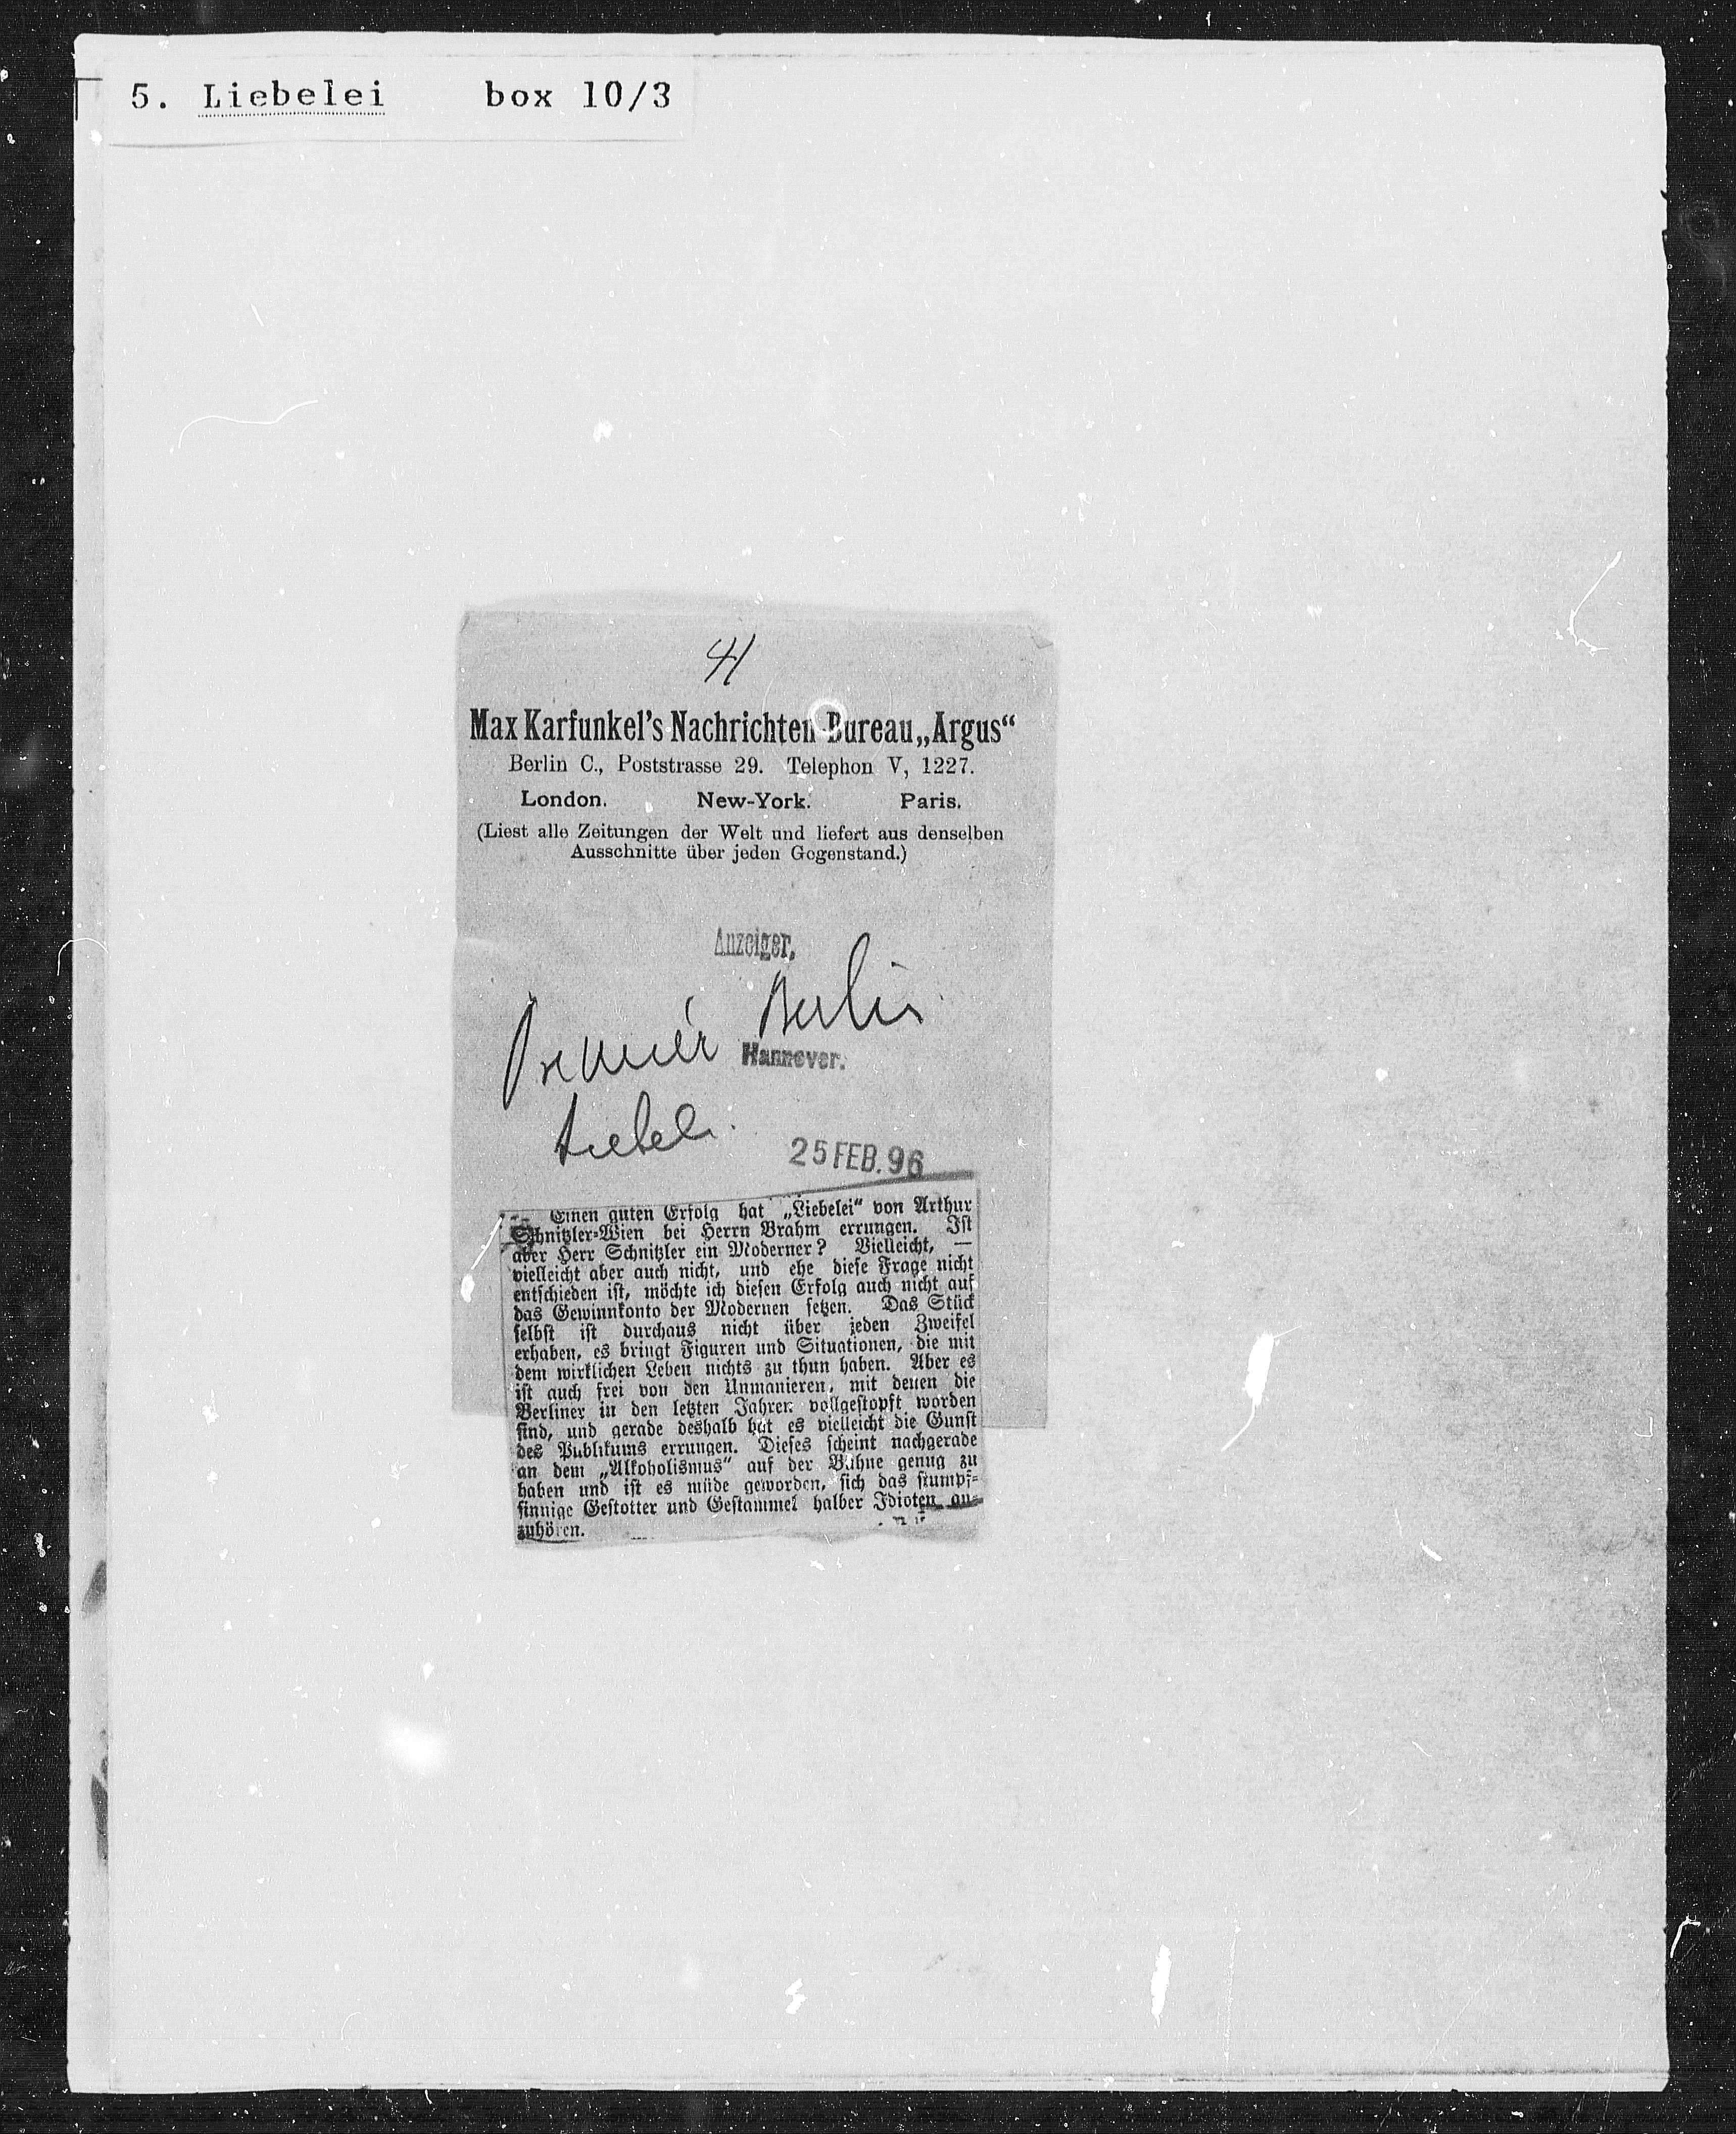 5. Liebelei box 10/3
41
Max Karfunkel's Nachrichten Bureau „Argus“
Berlin C., Poststrasse 29. Telephon V, 1227.
London. New-York. Paris.
(Liest alle Zeitungen der Welt und liefert aus denselben
Ausschnitte über jeden Gegenstand.)
Anzeiger,
Berlin
Premièr
Hannover.
Liebel.
25 FEB. 96
Einen guten Erfolg hat „Liebelei“ von Arthur
Schnitzler-Wien bei Herrn Brahm errungen. Ist
aber Herr Schnitzler ein Moderner? Vielleicht, —
vielleicht aber auch nicht, und ehe diese Frage nicht
entschieden ist, möchte ich diesen Erfolg auch nicht auf
das Gewinnkonto der Modernen setzen. Das Stück
selbst ist durchaus nicht über jeden Zweifel
erhaben, es bringt Figuren und Situationen, die mit
dem wirklichen Leben nichts zu thun haben. Aber es
ist auch frei von den Unmanieren, mit denen die
Berliner in den letzten Jahren vollgestopft worden
sind, und gerade deshalb hat es vielleicht die Gunst
des Publikums errungen. Dieses scheint nachgerade
an dem „Alkoholismus“ auf der Bühne genug zu
haben und ist es müde geworden, sich das stumpf-
sinnige Gestotter und Gestammel halber Idioten an-
zuhören.